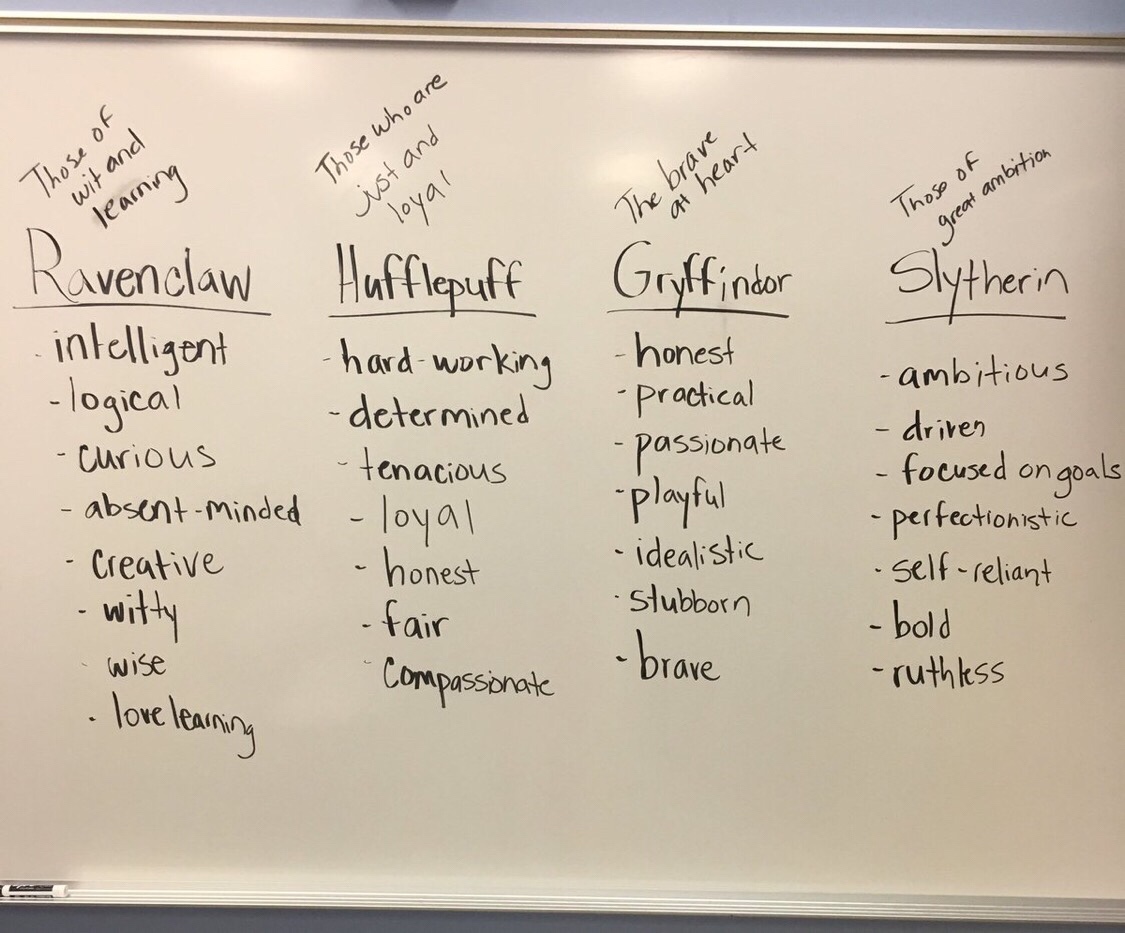 Those of
wit and
learning
Ravenclaw
intelligent
- logical
- curious
- absent-minded
- creative
- witty
wise
- love learning
Those who are
just and
loyal
Hufflepuff
- hard-working
- determined
- tenacious
- loyal
- honest
- fair
- compassionate
The brave
at heart
Gryffindor
- honest
- practical
- passionate
- playful
- idealistic
- stubborn
- brave
Those of
great ambition
Slytherin
- ambitious
- driven
- focused on goals
- perfectionistic
- self-reliant
- bold
- ruthless